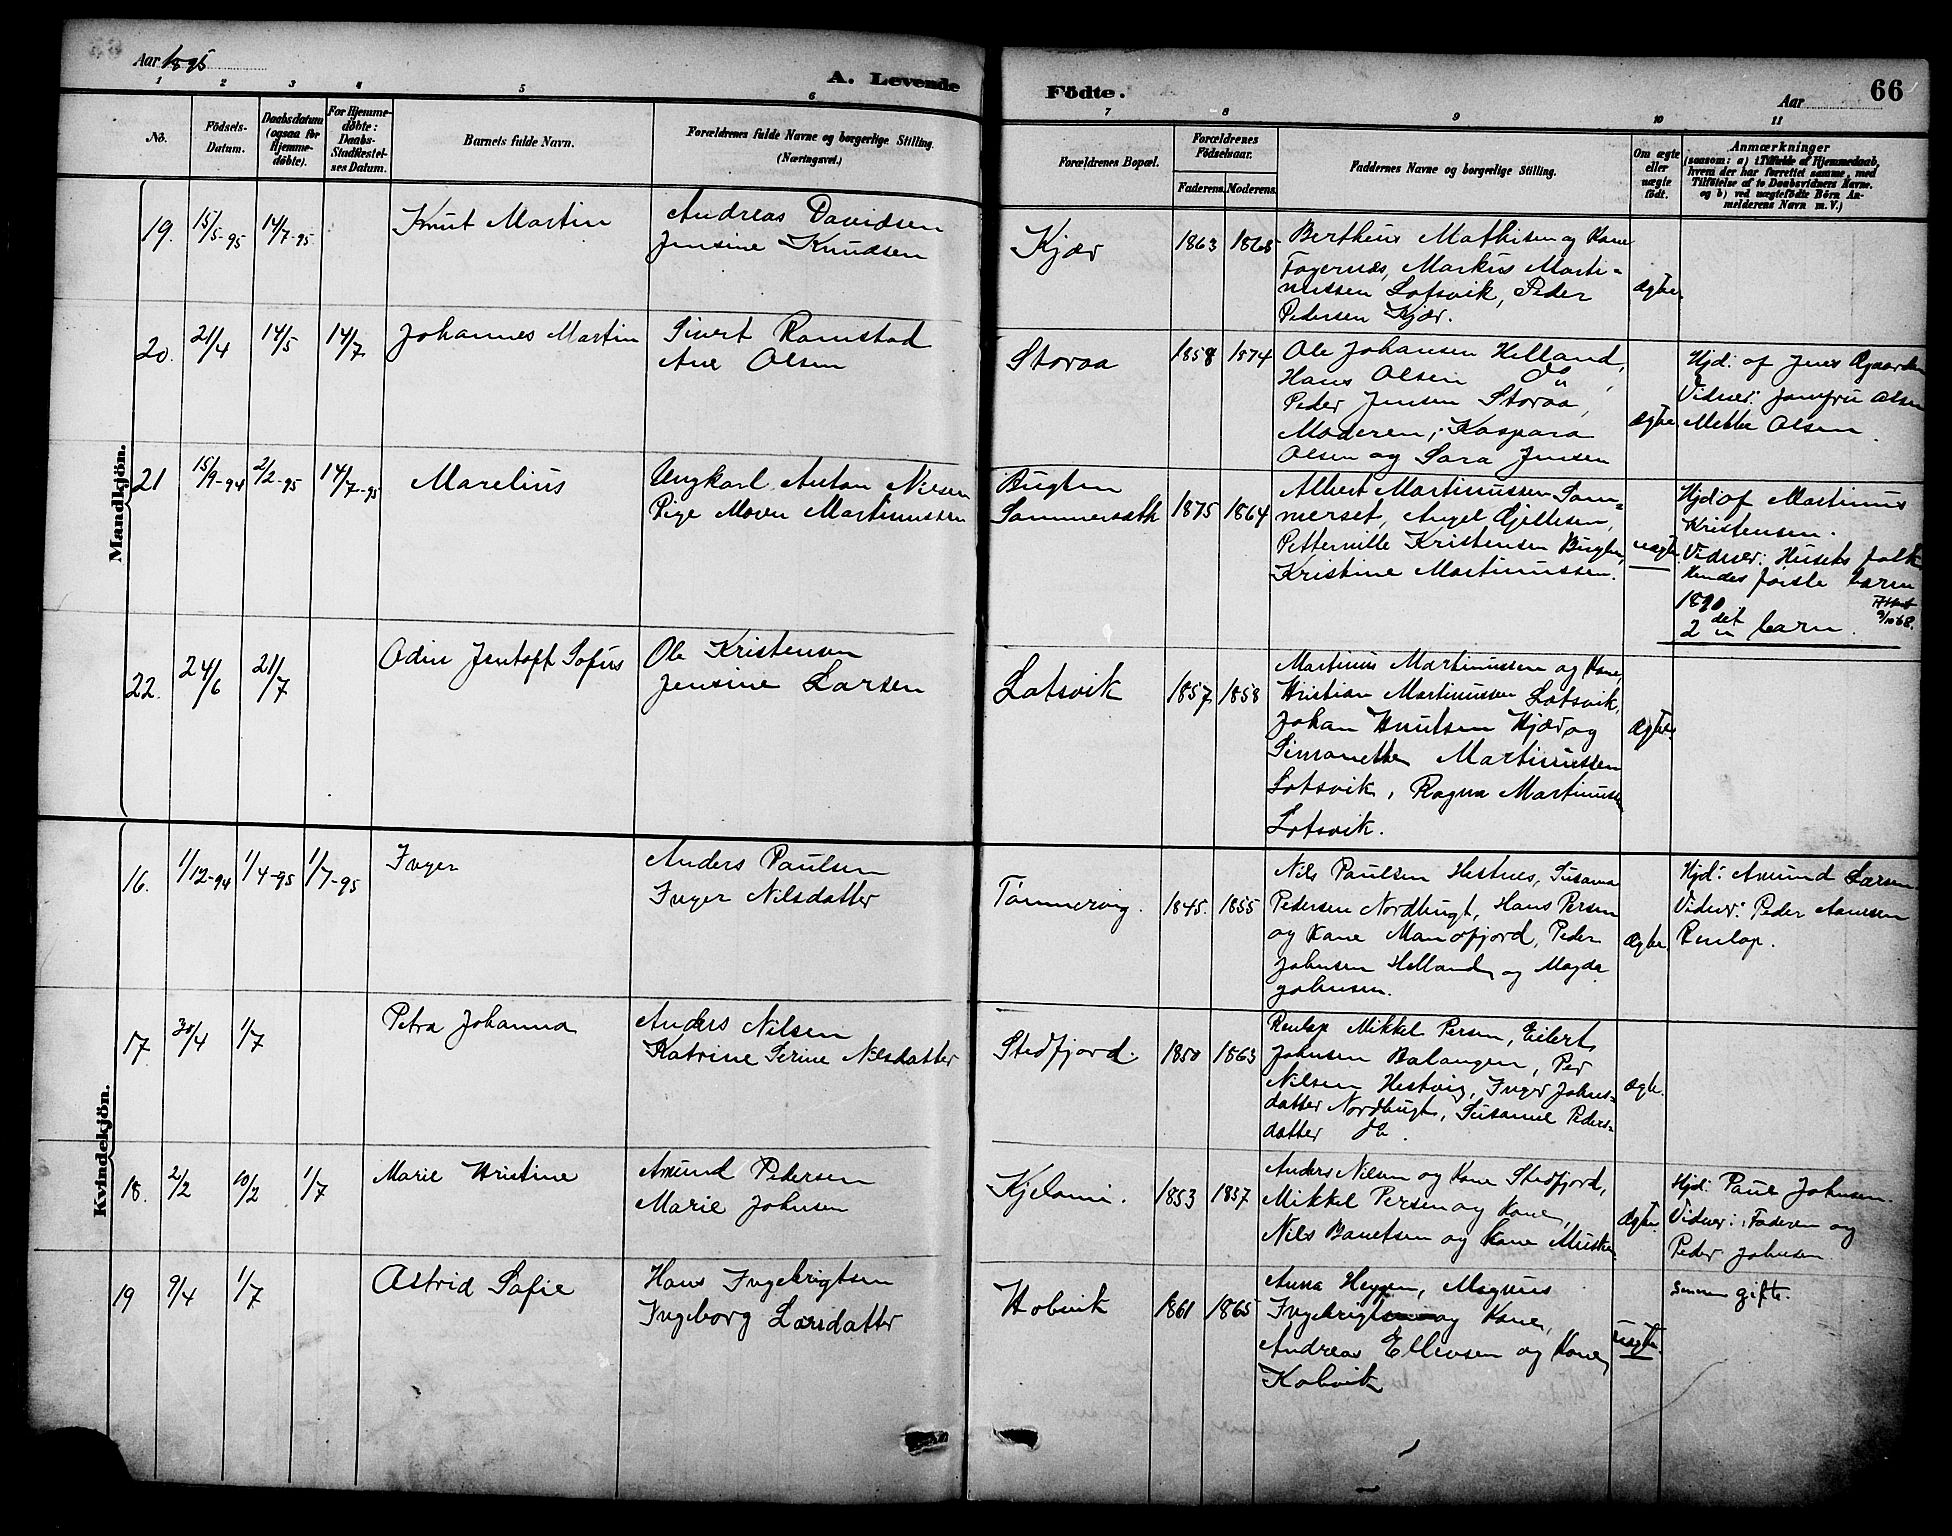 Aar 1895
A. Levende Födte.
Aar
66
1 2 3 4 5 6 7 8 9 10 11
No.
Födsels-
Datum.
Daabsdatum
(ogsaa for
Hjemme-
döbte).
For Hjemme-
døbte:
Daabs-
Stadfæstel-
ses Datum.
Barnets fulde Navn.
Forældrenes fulde Navne og borgerlige Stilling.
(Næringsvei.)
Forældrenes Bopæl.
Forældrenes
Födselsaar.
Faderens. Moderens.
Faddernes Navne og borgerlige Stilling.
Om ægte
eller
uægte
födt.
Anmærkninger
(saasom: a) i Tilfælde af Hjemmedaab,
hvem der har forrettet samme, med
Tilföielse af to Daabsvidners Navne.
og b) ved uægtefödte Börn An-
melderens Navn m. V.)
Mandkjön.
19. 15/5-95 14/7-95
Knut Martin
Andreas Davidsen
Jensine Knudsen
Kjær
1863 1868
Bertheus Mathisen og Kone
Fagernæs, Markus Marti-
nussen Lotsvik, Peder
Pedersen Kjær.
ægte.
20. 21/4 14/5 14/7
Johannes Martin
Sivert Ramstad
Ane Olsen
Storaa
1858 1874
Ole Johansen Helland,
Hans Olsen do,
Peder Jensen Storaa,
Moderen, Kaspara
Olsen og Sara Jensen
ægte
Hjd: af Jens
Vidner: Jomfru Olsen
Mette Olsen.
21 15/9-94 2/2-95 14/7-95
Marelius
Ungkarl Anton Nilsen
Pige Maren Martinussen
Bugten
Sammersæth
1875 1864
Albert Martinussen Som-
merset, Angel
Petternille Kristensen Bugten,
Kristine Martinussen.
uægte
Hjd: af Martinus
Kristensen.
Vidner: Husets folk
Hendes første barn
1890
2 det barn.
22. 24/6 21/7
Odin Jentoft Sofus
Ole Kristensen
Jensine Larsen
Lotsvik
1857 1858
Martinus Martinussen og Kone,
Kristian Martinussen Lotsvik,
Johan Knutsen Kjær og
Simonette Martinussen
Lotsvik, Ragna Martinussen
Lotsvik.
ægte.
Kvindekjön.
16. 1/12-94 1/4-95 1/7-95
Inger
Anders Paulsen
Inger Nilsdatter
Tømmervig.
1845. 1855
Nils Paulsen Hestnes, Susanna
Pedersen Nordbugt, Hans Persen
og Kone Mandfjord, Peder
Johnsen Helland, og Magda
Johnsen.
ægte.
Hjd: Amund Larsen
Vidner: Peder Aanesen
Renlap.
17. 30/4 1/7
Petra Johanna
Anders Nilsen
Katrine Serine Nilsdatter
Stedfjord.
1850 1863
Renlap Mikkel Persen, Eilert
Johnsen Balangen, Per
Nilsen Hestvig, Inger Johns-
datter Nordbugt, Susanne Peders-
datter do.
ægte.
18. 2/2 10/2 1/7
Marie Kristine
Amund Pedersen
Marie Johnsen
1853 1857
Anders Nilsen og Kone Stedfjord,
Mikkel Persen og Kone,
Nils og Kone
ægte.
Hjd: Paul Johnsen.
Vidner: Faderen og
Peder Johnsen
19 9/4 1/7
Astrid Sofie
Hans Ingebrigtsen
Ingeborg Larsdatter
Kobvik
1861 1865
Anna Heggen, Magnus
Ingebrigtsen og Kone,
Andreas Ellevsen og Kone,
Kobvik
uægte.
Senere gifte.